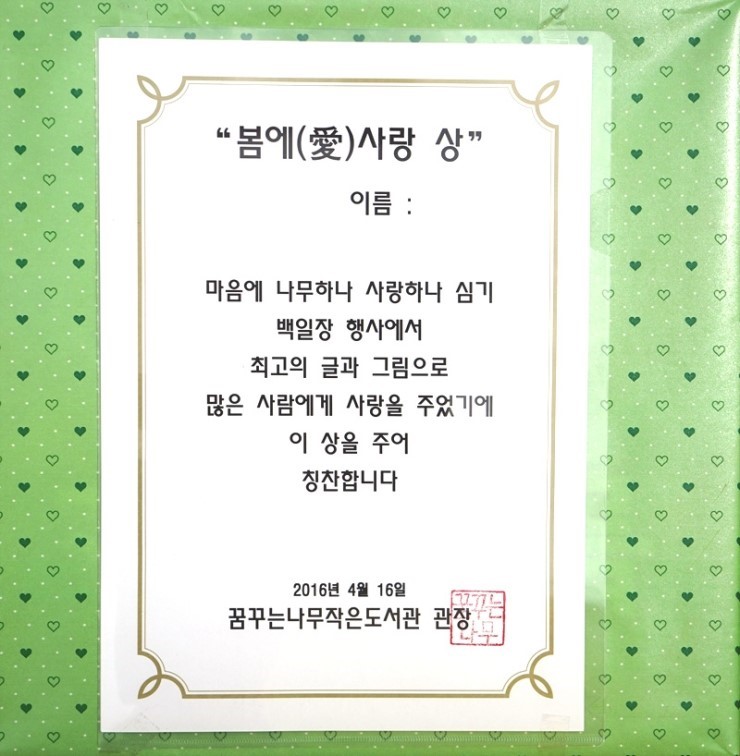 “봄에(愛)사랑 상”
이름 :
마음에 나무하나 사랑하나 심기
백일장 행사에서
최고의 글과 그림으로
많은 사람에게 사랑을 주었기에
이 상을 주어
칭찬합니다
2016년 4월 16일
꿈꾸는나무작은도서관 관장
꿈꾸는
나무